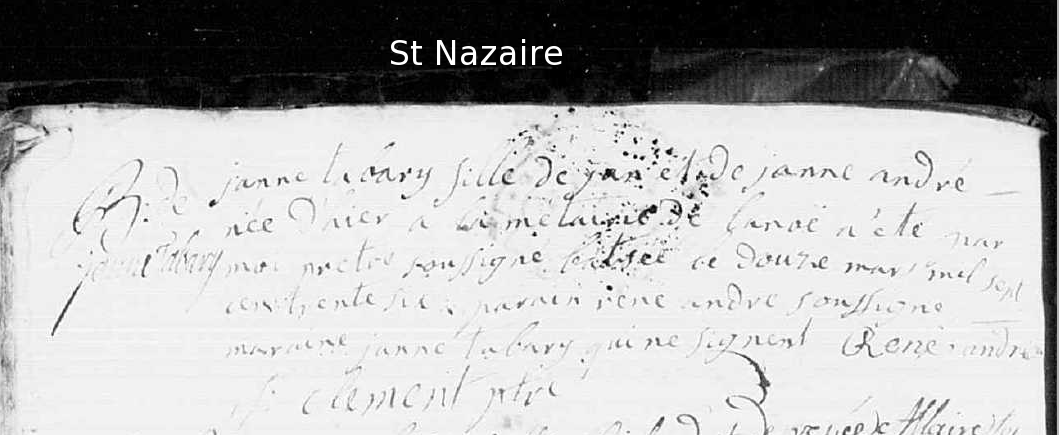 St Nazaire
B. de
janne tabary
janne tabary fille de jan et de janne andre
née d'hier a la metairie de lanoë a été par
moi pretre soussigné batisée ce douze mars mil sept
cent trente six parain rene andre soussigne
maraine janne tabary qui ne signent René andre
clement ptre